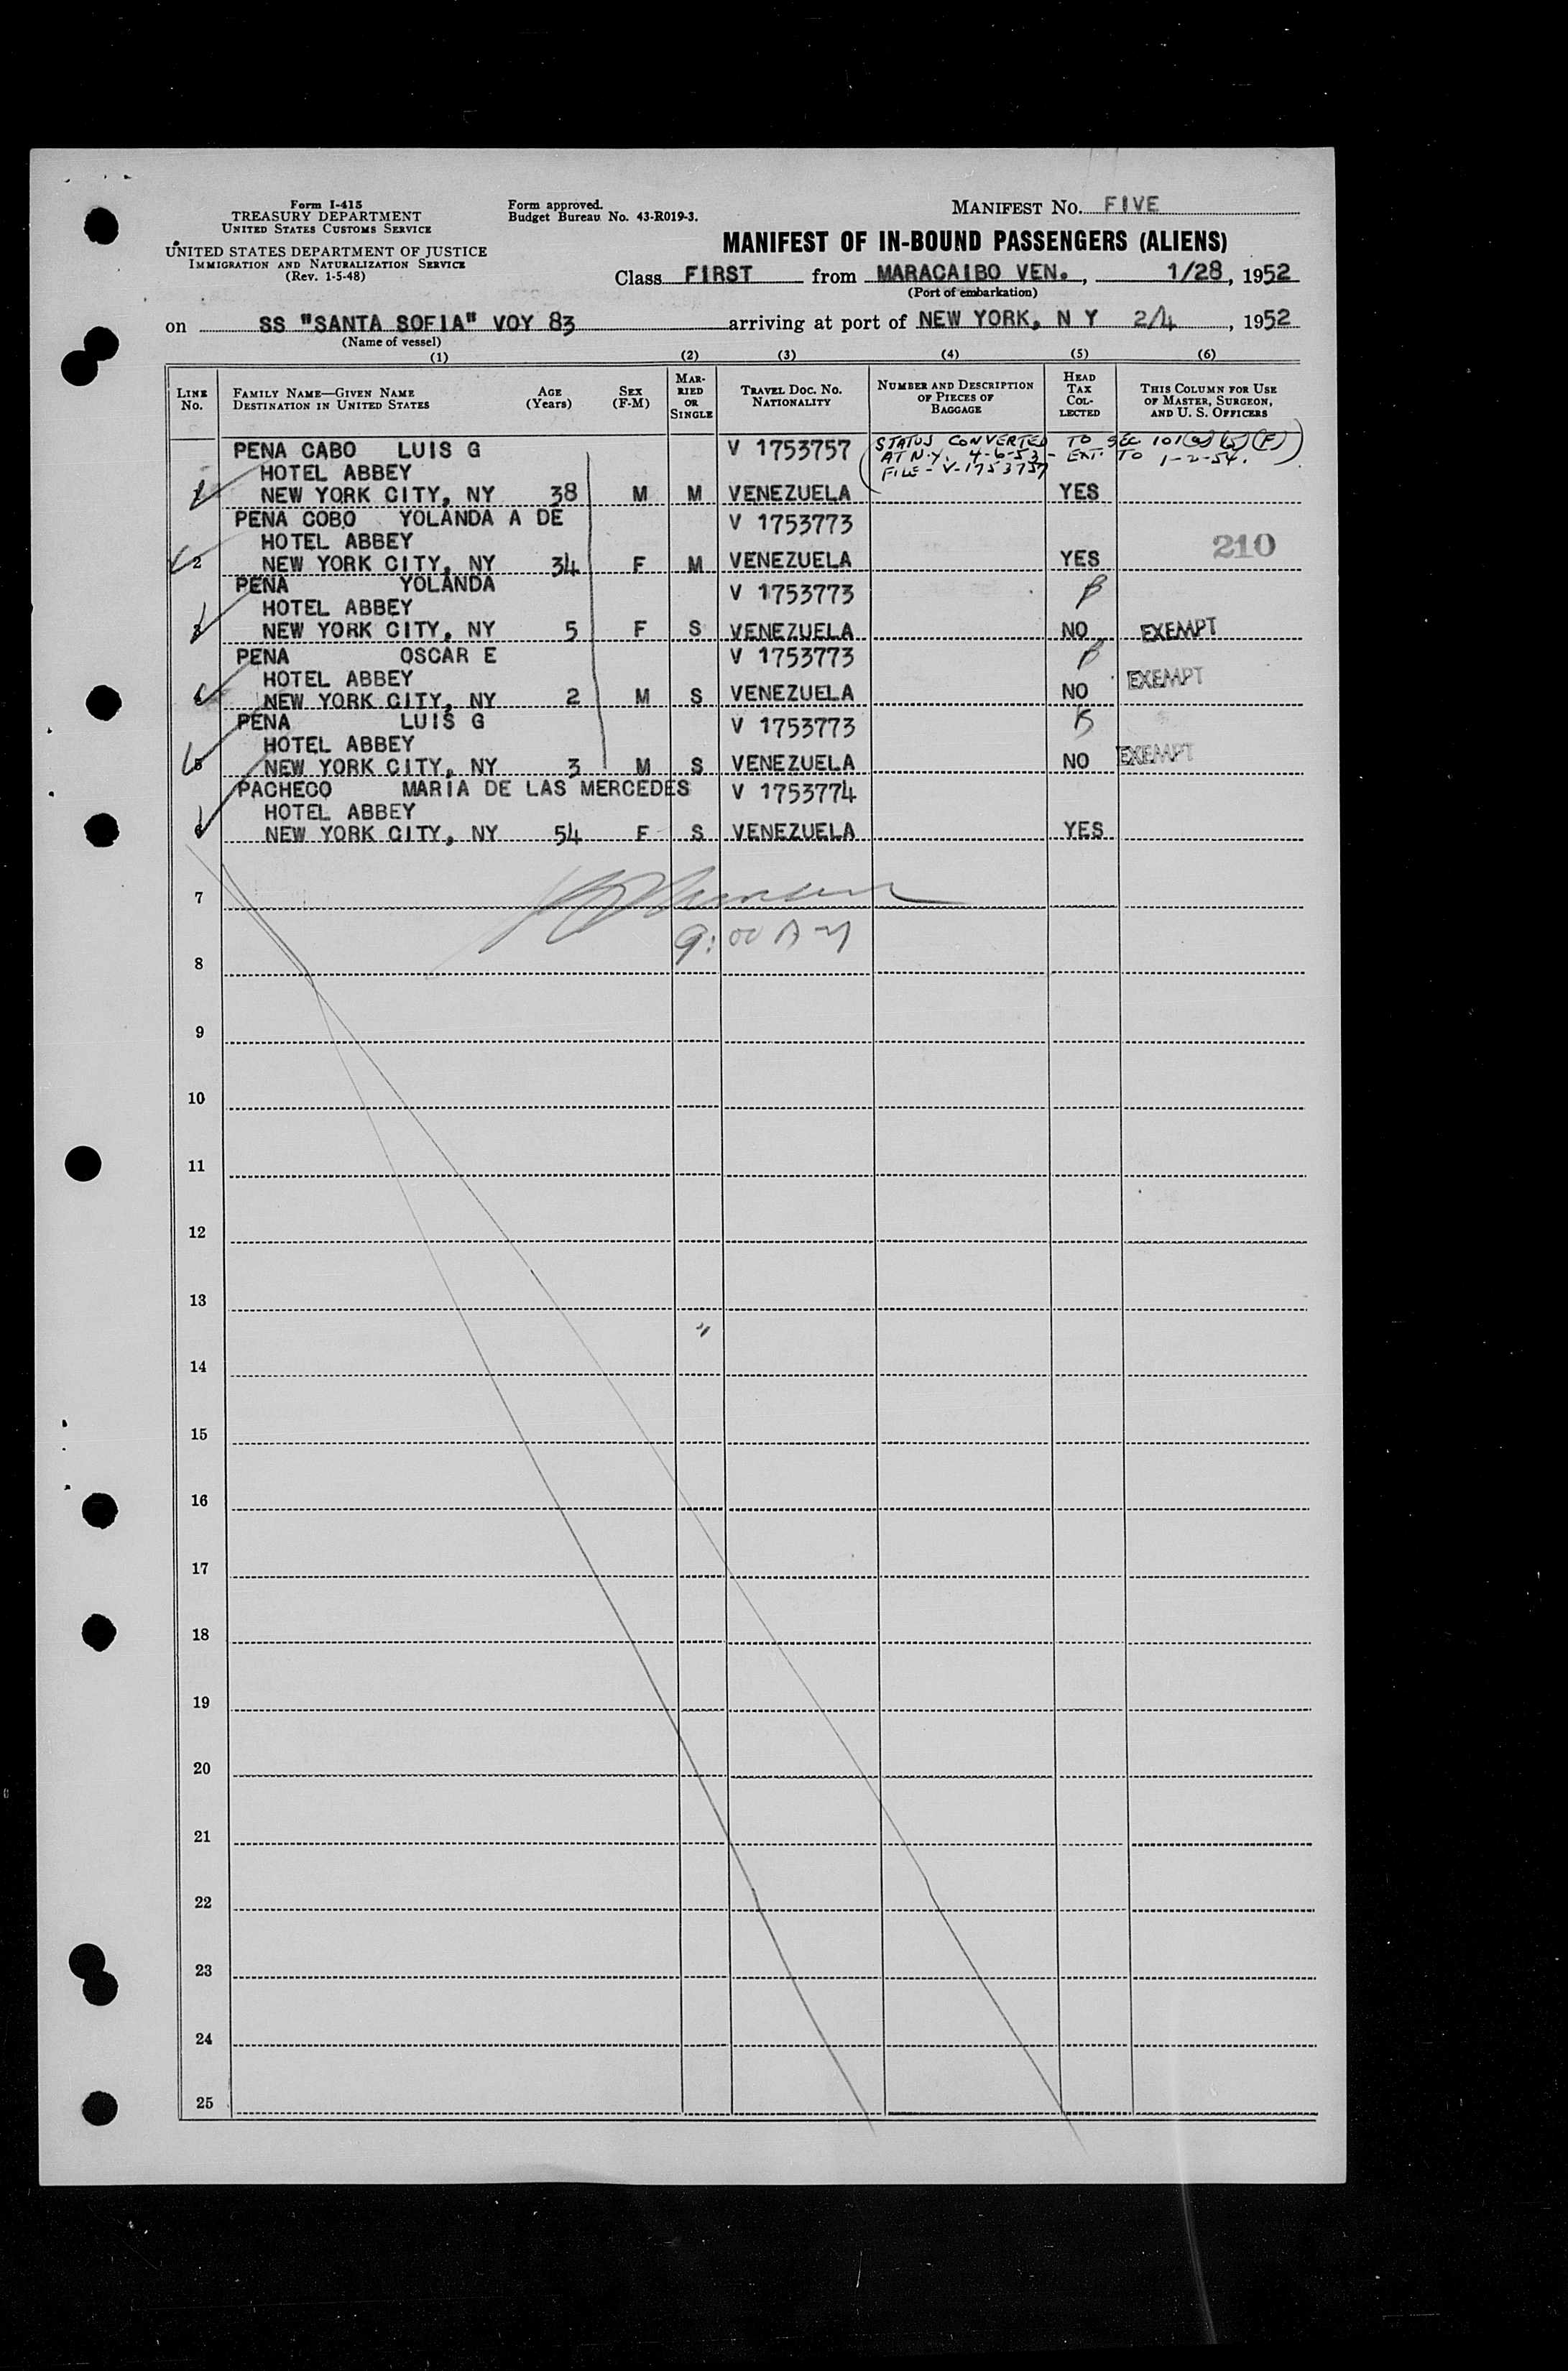 Form I-415
TREASURY DEPARTMENT
UNITED STATES CUSTOMS SERVICE
UNITED STATES DEPARTMENT OF JUSTICE
IMMIGRATION AND NATURALIZATION SERVICE
(Rev. 1-5-48)
Form approved.
Budget Bureau No. 43-R019-3.
MANIFEST NO. FIVE
MANIFEST OF IN-BOUND PASSENGERS (ALIENS)
Class FIRST from MARACAIBO VEN., 1/28, 1952
(Port of embarkation)
on SS "SANTA SOFIA" VOY 83 arriving at port of NEW YORK, N Y 2/4, 1952
(Name of vessel)
(1) (2) (3) (4) (5) (6)
LINE No.
FAMILY NAME—GIVEN NAME
DESTINATION IN UNITED STATES
AGE (Years)
SEX (F-M)
MARRIED OR SINGLE
TRAVEL DOC. NO.
NATIONALITY
NUMBER AND DESCRIPTION OF PIECES OF BAGGAGE
HEAD TAX COLLECTED
THIS COLUMN FOR USE OF MASTER, SURGEON, AND U. S. OFFICERS
PENA CABO LUIS G V 1753757 STATUS CONVERTED TO SEC 101(a)(15)(F)
HOTEL ABBEY AT N.Y. 4-6-53 - EXT. TO 1-2-54.
FILE - V-1753757
1 NEW YORK CITY, NY 38 M M VENEZUELA YES
PENA COBO YOLANDA A DE V 1753773
HOTEL ABBEY 210
2 NEW YORK CITY, NY 34 F M VENEZUELA YES
PENA YOLANDA V 1753773
HOTEL ABBEY
3 NEW YORK CITY, NY 5 F S VENEZUELA NO EXEMPT
PENA OSCAR E V 1753773
HOTEL ABBEY EXEMPT
4 NEW YORK CITY, NY 2 M S VENEZUELA NO
PENA LUIS G V 1753773
HOTEL ABBEY
5 NEW YORK CITY, NY 3 M S VENEZUELA NO EXEMPT
PACHECO MARIA DE LAS MERCEDES V 1753774
HOTEL ABBEY
6 NEW YORK CITY, NY 54 F S VENEZUELA YES
7
9:00 AM
8
9
10
11
12
13
14
15
16
17
18
19
20
21
22
23
24
25